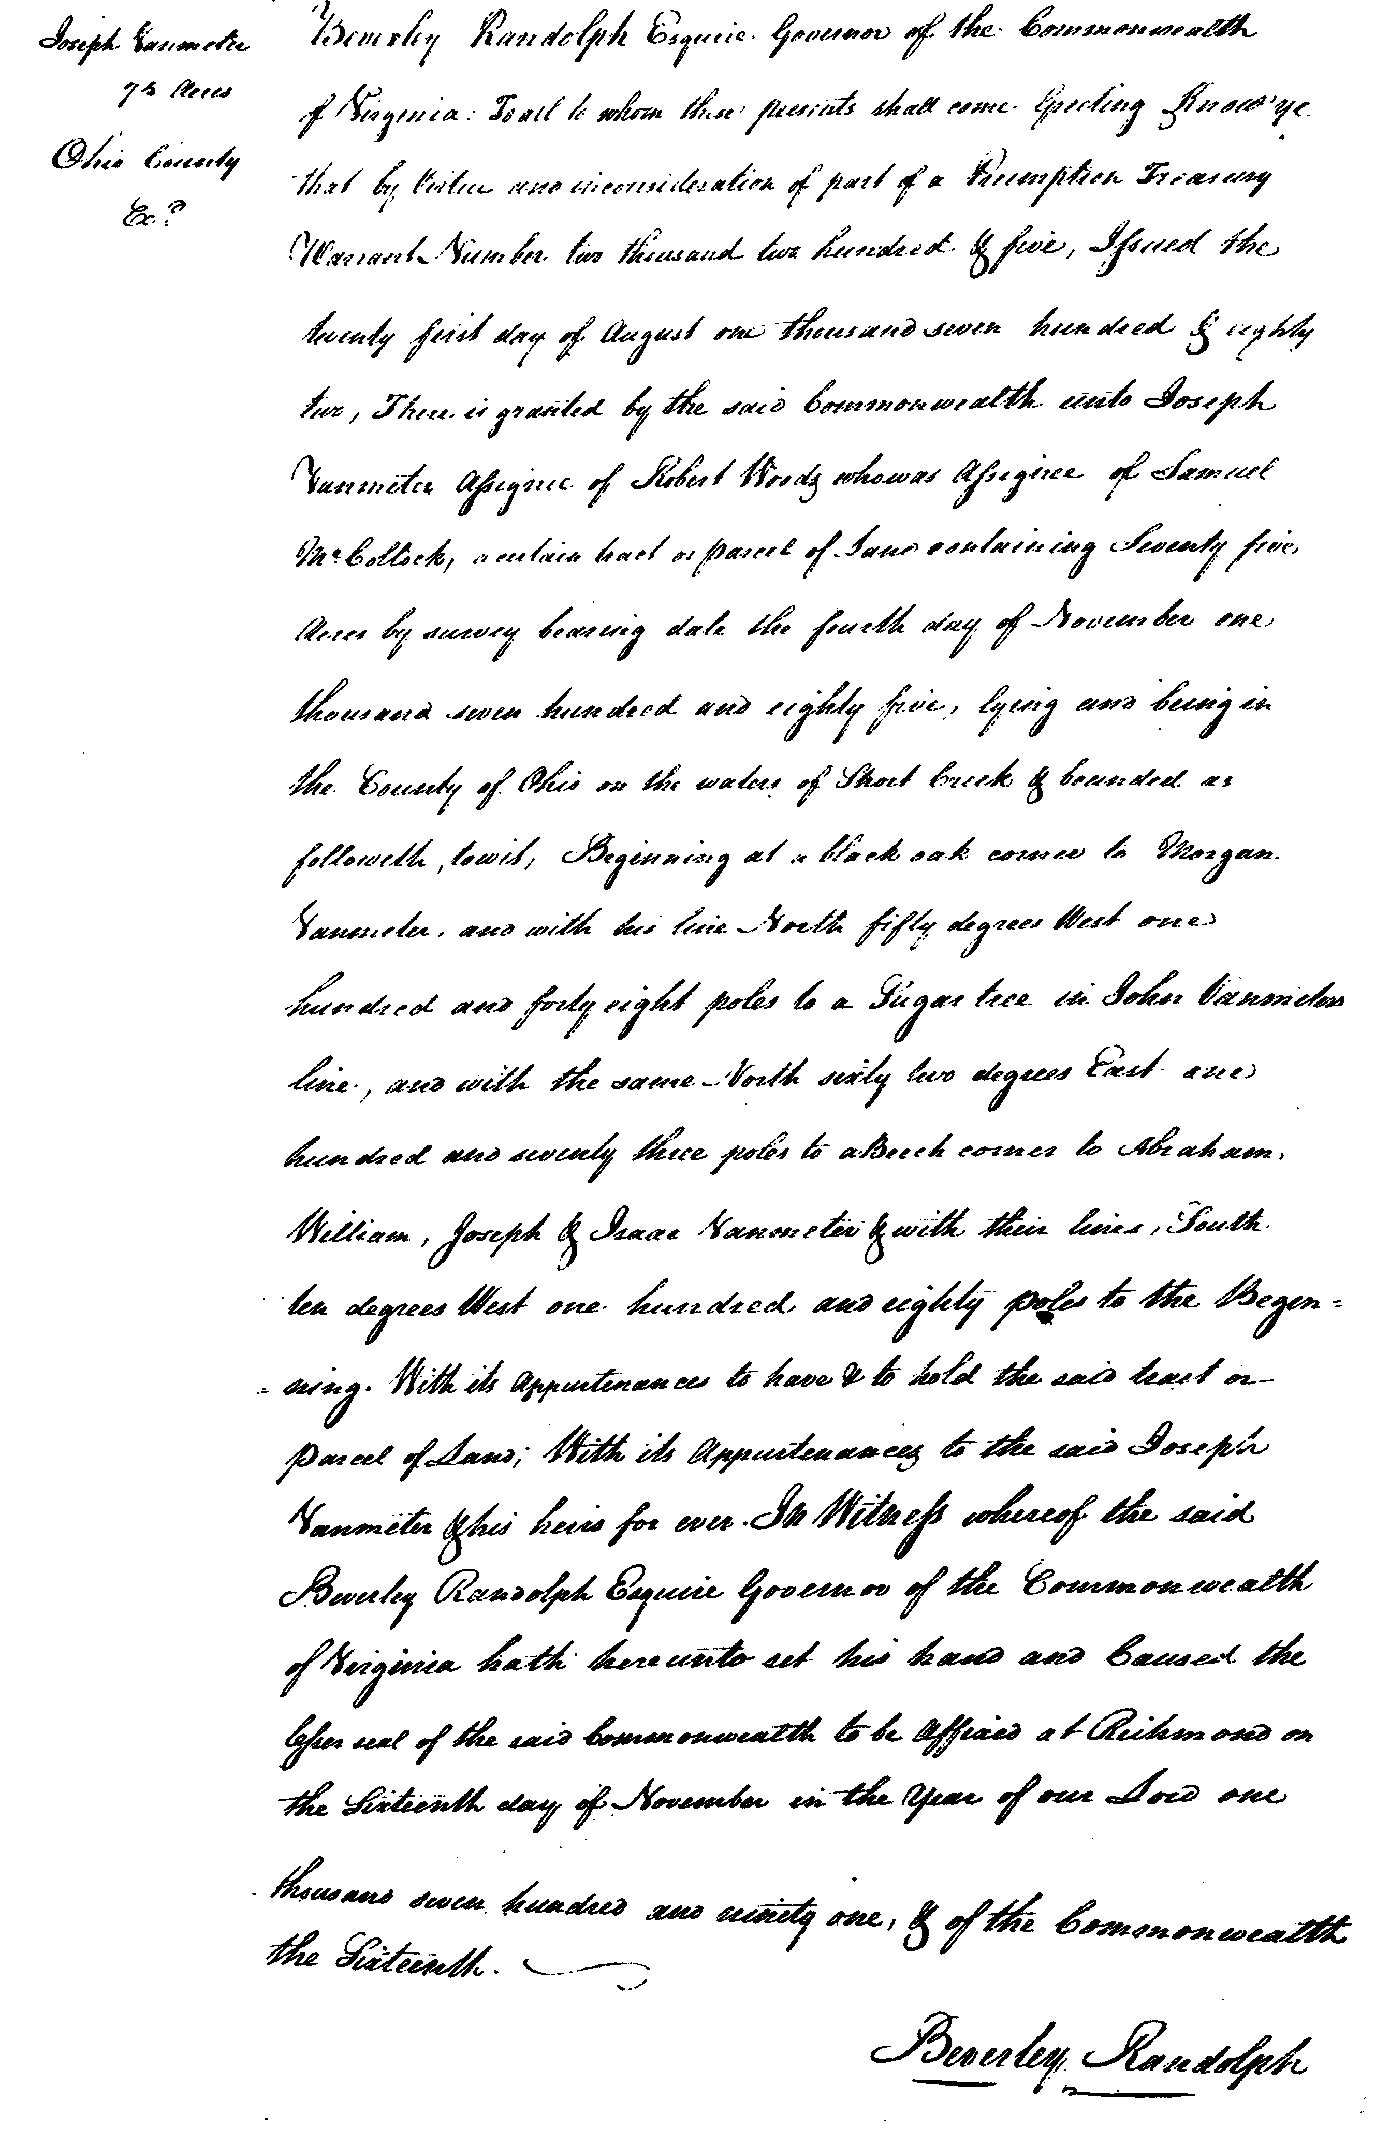 Joseph Vanmeter
75 Acres
Ohio County
Exd
Beverley Randolph Esquire Governor of the Commonwealth
of Virginia: To all to whom these presents shall come Greeting Know ye
that by Virtue and in consideration of part of a Preemption Treasury
Warrant Number two thousand two hundred & five, Issued the
twenty first day of August one thousand seven hundred & eighty
two, There is granted by the said Commonwealth unto Joseph
Vanmeter Assignee of Robert Woods who was Assignee of Samuel
McCollock, a certain tract or parcel of Land containing Seventy five
Acres by survey bearing date the fourth day of November one
thousand seven hundred and eighty five, lying and being in
the County of Ohio on the waters of Short Creek & bounded as
followeth, towit, Beginning at a black oak corner to Morgan
Vanmeter, and with his line North fifty degrees West one
hundred and forty eight poles to a Sugar tree in John Vanmeters
line, and with the same North sixty two degrees East one
hundred and seventy three poles to a Beech corner to Abraham,
William, Joseph & Isaac Vanmeter & with their lines, South
ten degrees West one hundred and eighty poles to the Begin=
=ning. With its Appurtenances to have & to hold the said tract or
Parcel of Land; With its Appurtenances to the said Joseph
Vanmeter & his heirs for ever. In Witness whereof the said
Beverley Randolph Esquire Governor of the Commonwealth
of Virginia hath hereunto set his hand and Caused the
lesser seal of the said Commonwealth to be Affixed at Richmond on
the Sixteenth day of November in the Year of our Lord one
thousand seven hundred and ninety one, & of the Commonwealth
the Sixteenth.
Beverley Randolph